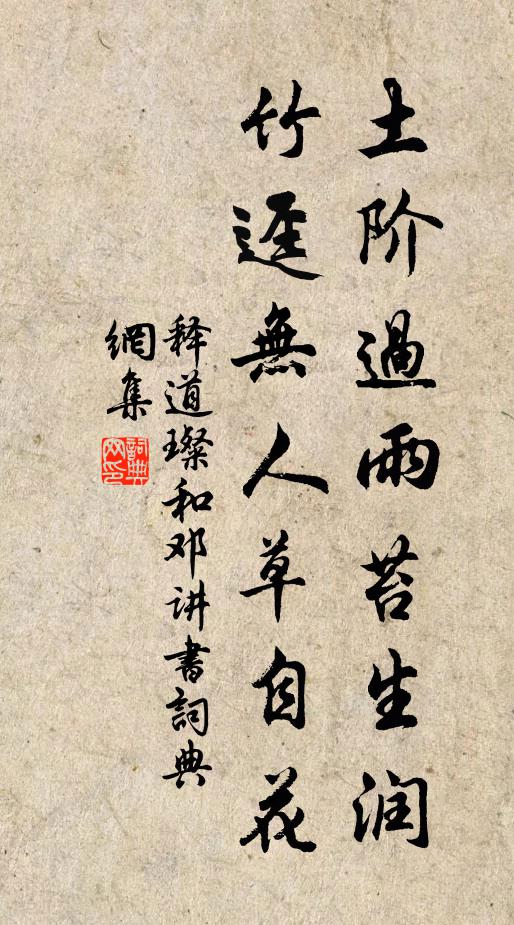 土阶過雨苔生润
竹迳無人草自花
释道璨和邓讲書詞典
網集
詞典
网印